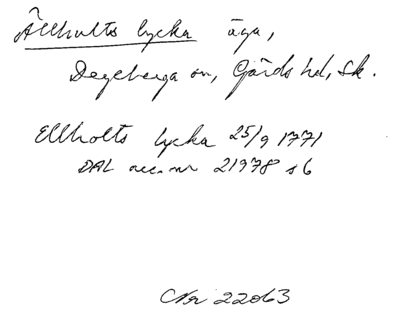 Ällholts lycka äga,
Degeberga sn, Gärds hd, Sk.
Ellholts lycka 25/9 1771
DAL acc.nr 21978 s 6
22063